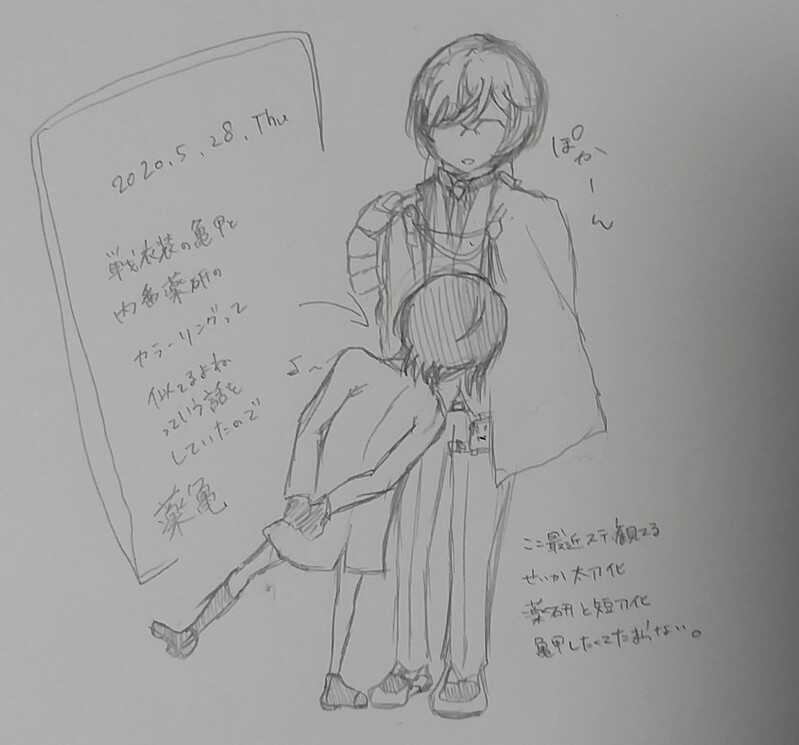 2020.5.28.Thu
戦衣装の亀甲と
内番薬研の
カラーリングって
似てるよね
っていう話を
していたので
薬亀
ぽやーん
♪〜
ここ最近ステ観てる
せいか太刀化
薬研と短刀化
亀甲したくてたまらない。